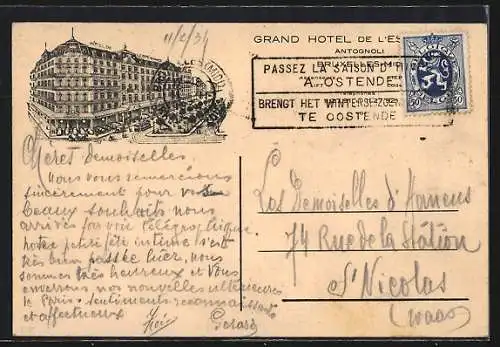 11/2/34
GRAND HOTEL DE L'ES
ANTOGNOLI
BRUXELLES-MIDI
PASSEZ LA SAISON D'
A OSTENDE
BRENGT HET WINTERSEIZOEN
TE OOSTENDE
50 50
demoiselles
Nous vous remercions
sincèrement pour vos
beaux souhaits nous
arrivés par voie télégraphique
notre petite fête intime s'est
très bien passée hier, nous
sommes très heureux et vous
enverrons nos nouvelles ultérieures
de Paris. Sentiments reconnaissants
et affectueux
Gérard
Les Demoiselles d'
74 Rue de la Station
St Nicolas
(Waas)